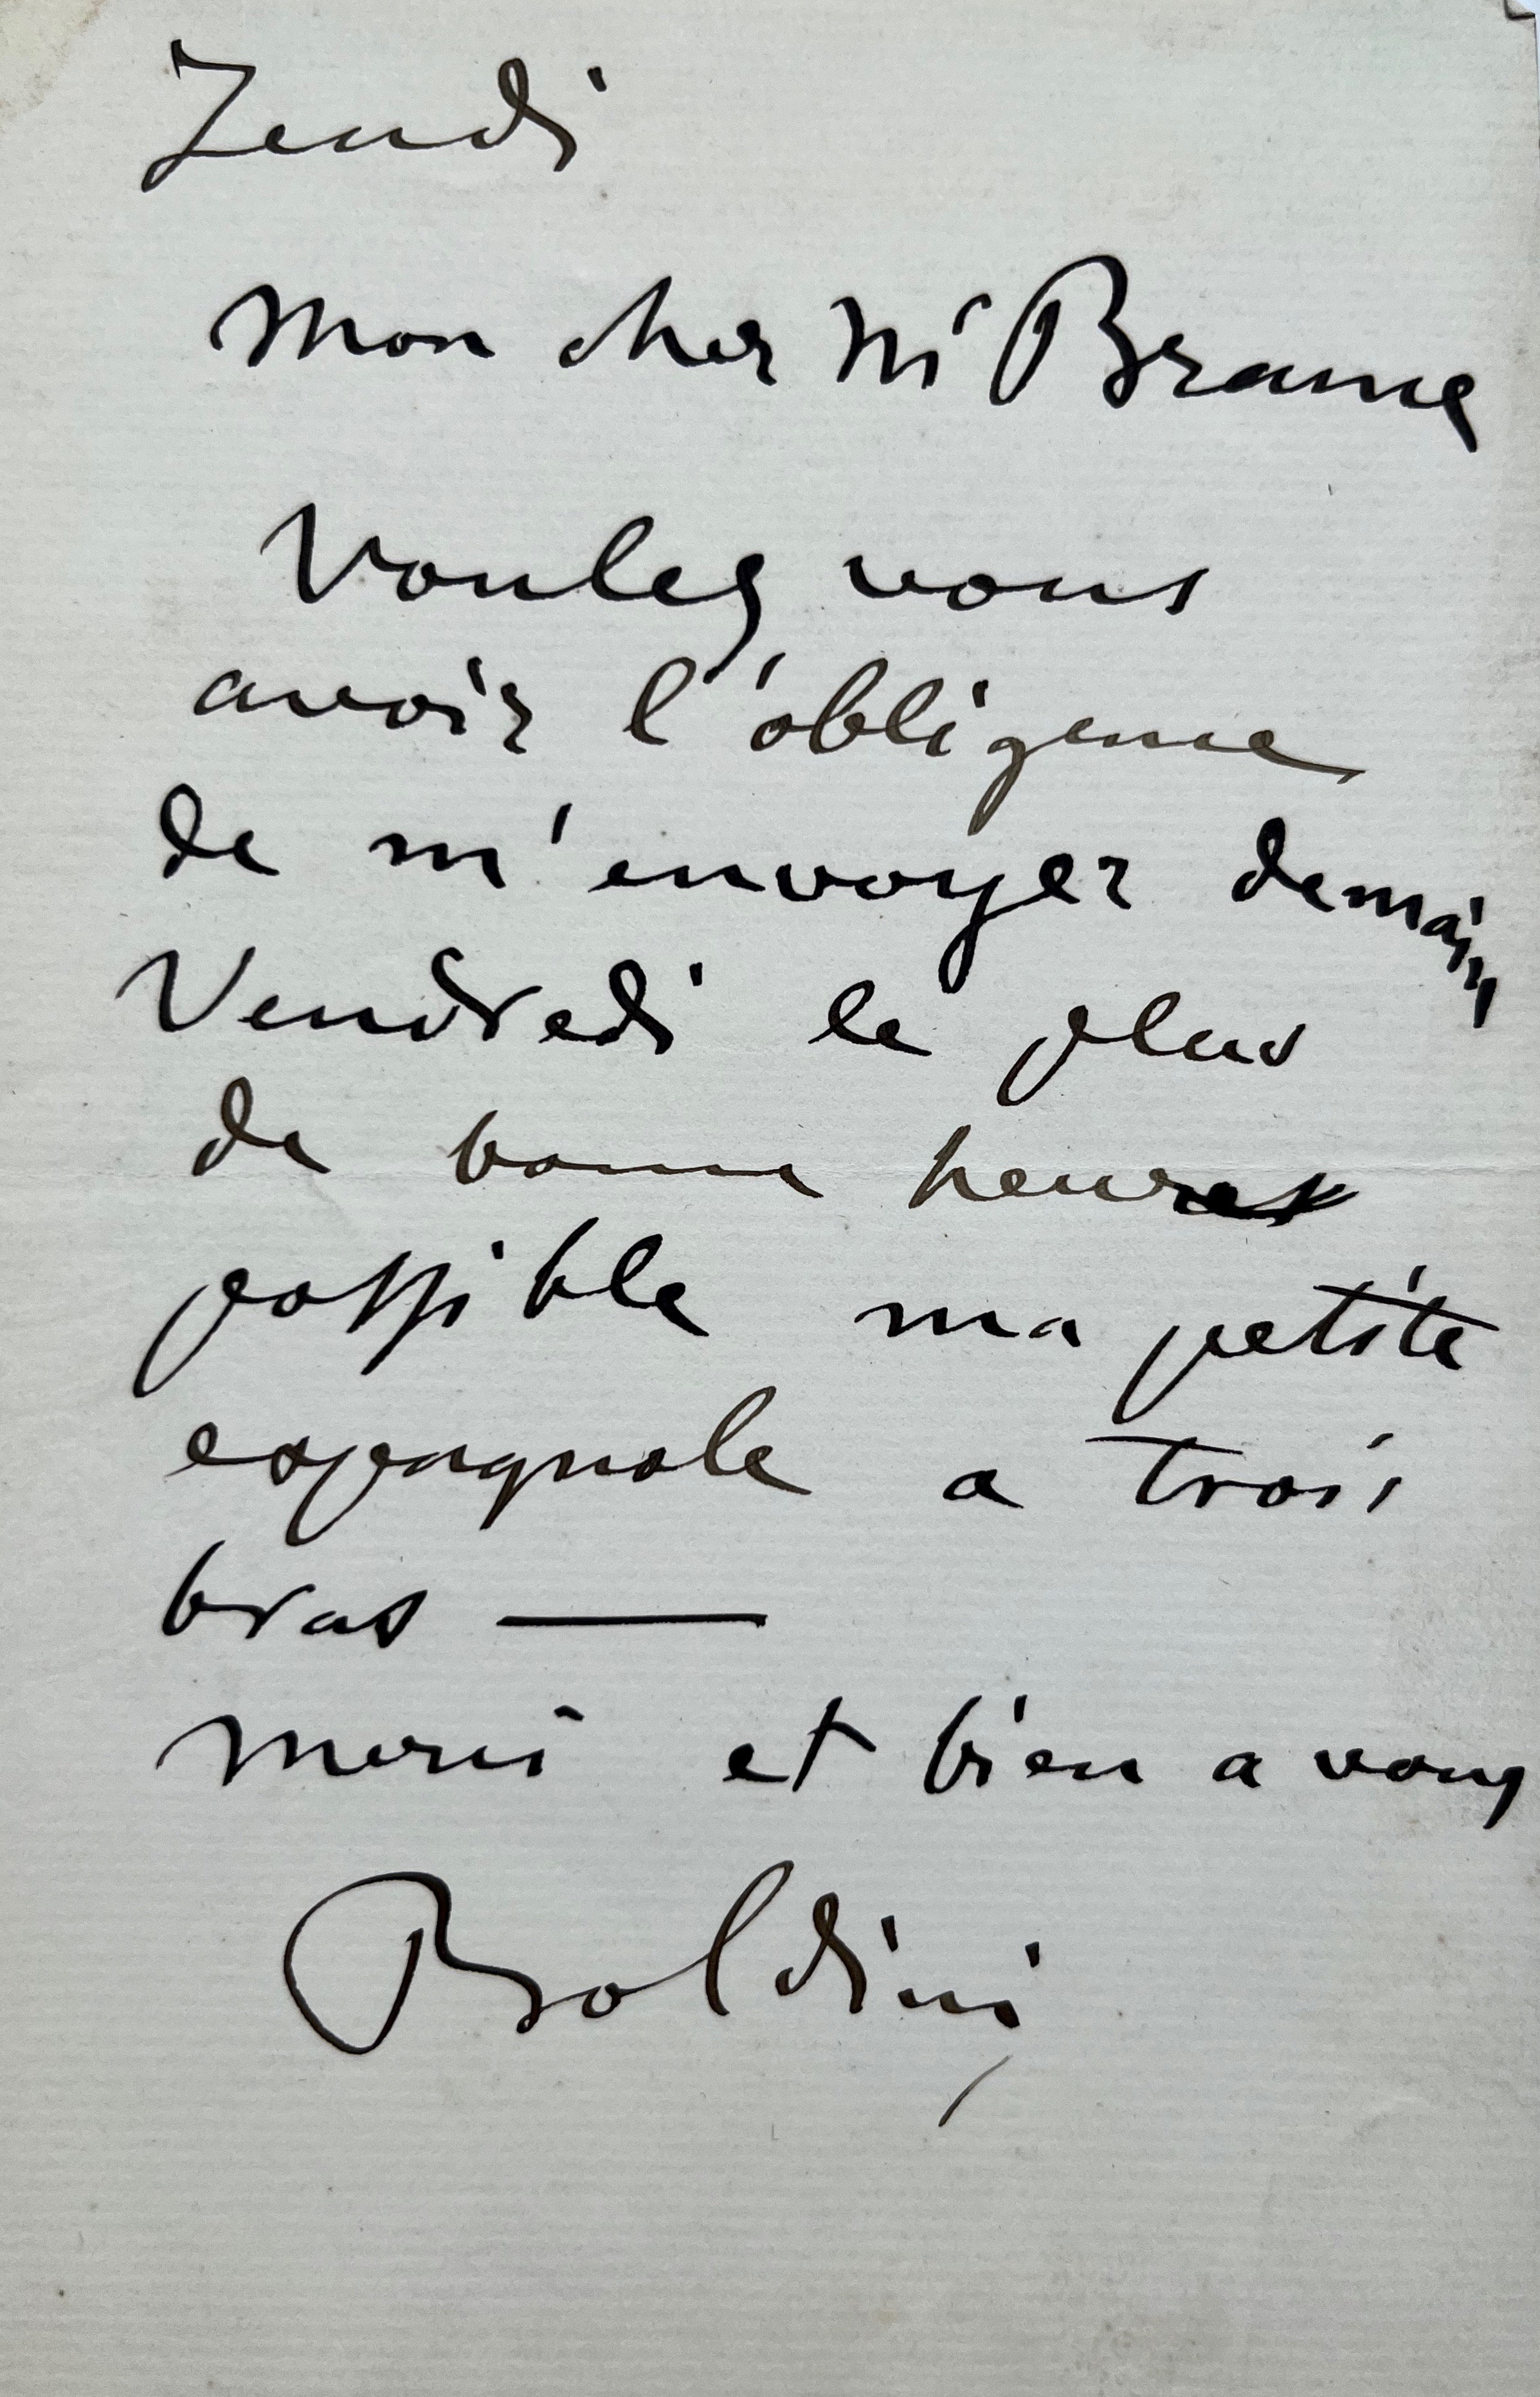 Jeudi
Mon cher Mr Brame
Voulez vous
avoir l'obligence
de m'envoyer demain
Vendredi le plus
de bonne heure
possible ma petite
espagnole a trois
bras —
Merci et bien a vous
Boldini